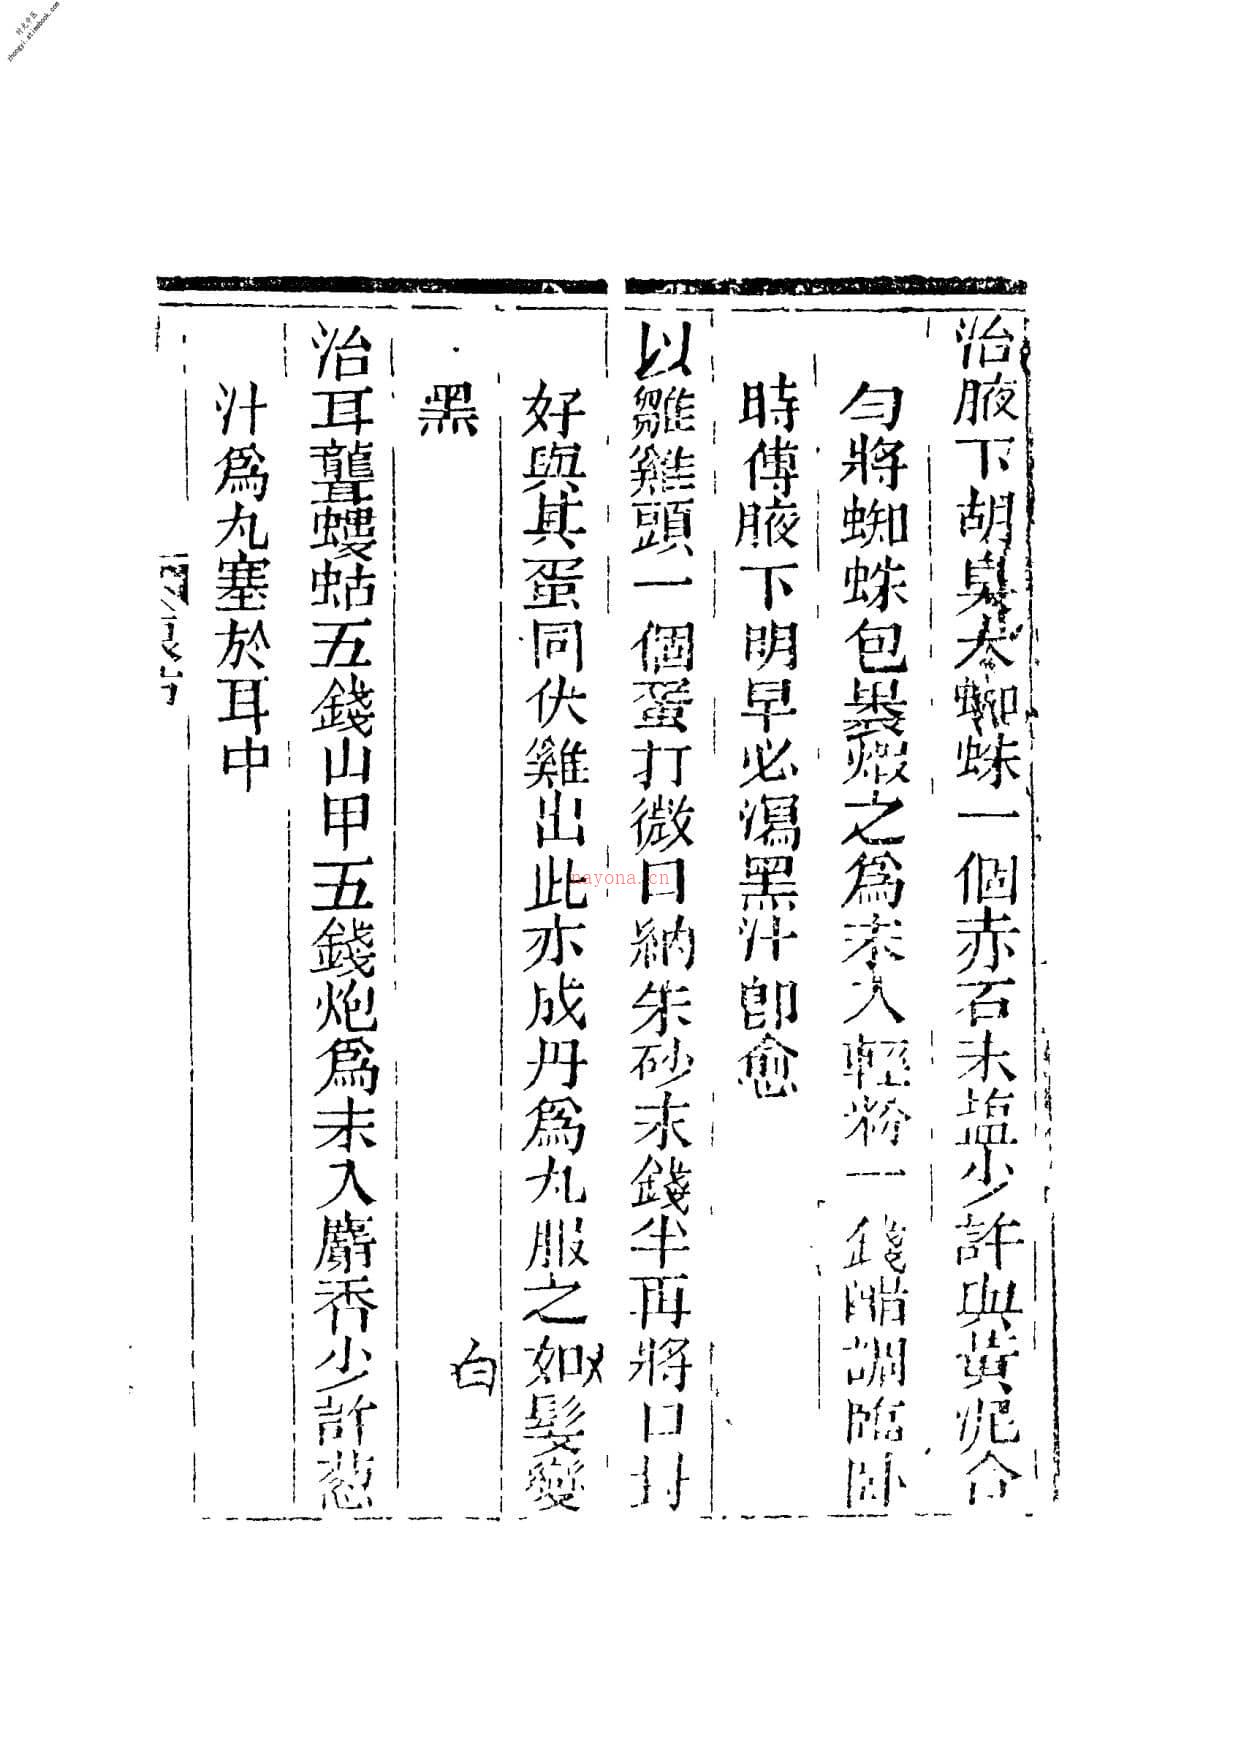 时光中医
zhongyi.atimebook.com
治腋下胡臭大蜘蛛一個赤石末塩少許與黃泥合
勻將蜘蛛包褁煆之爲末入輕粉一錢醋調臨卧
時傅腋下明早必瀉黑汁卽愈
以雛雞頭一個蛋打微口納朱砂末錢半再將口封
好與其蛋同伏雞出此亦成丹爲丸服之如髮變
白
黑
治耳聾螻蛄五錢山甲五錢炮爲末入麝香少許葱
汁爲丸塞於耳中
nayona.cn